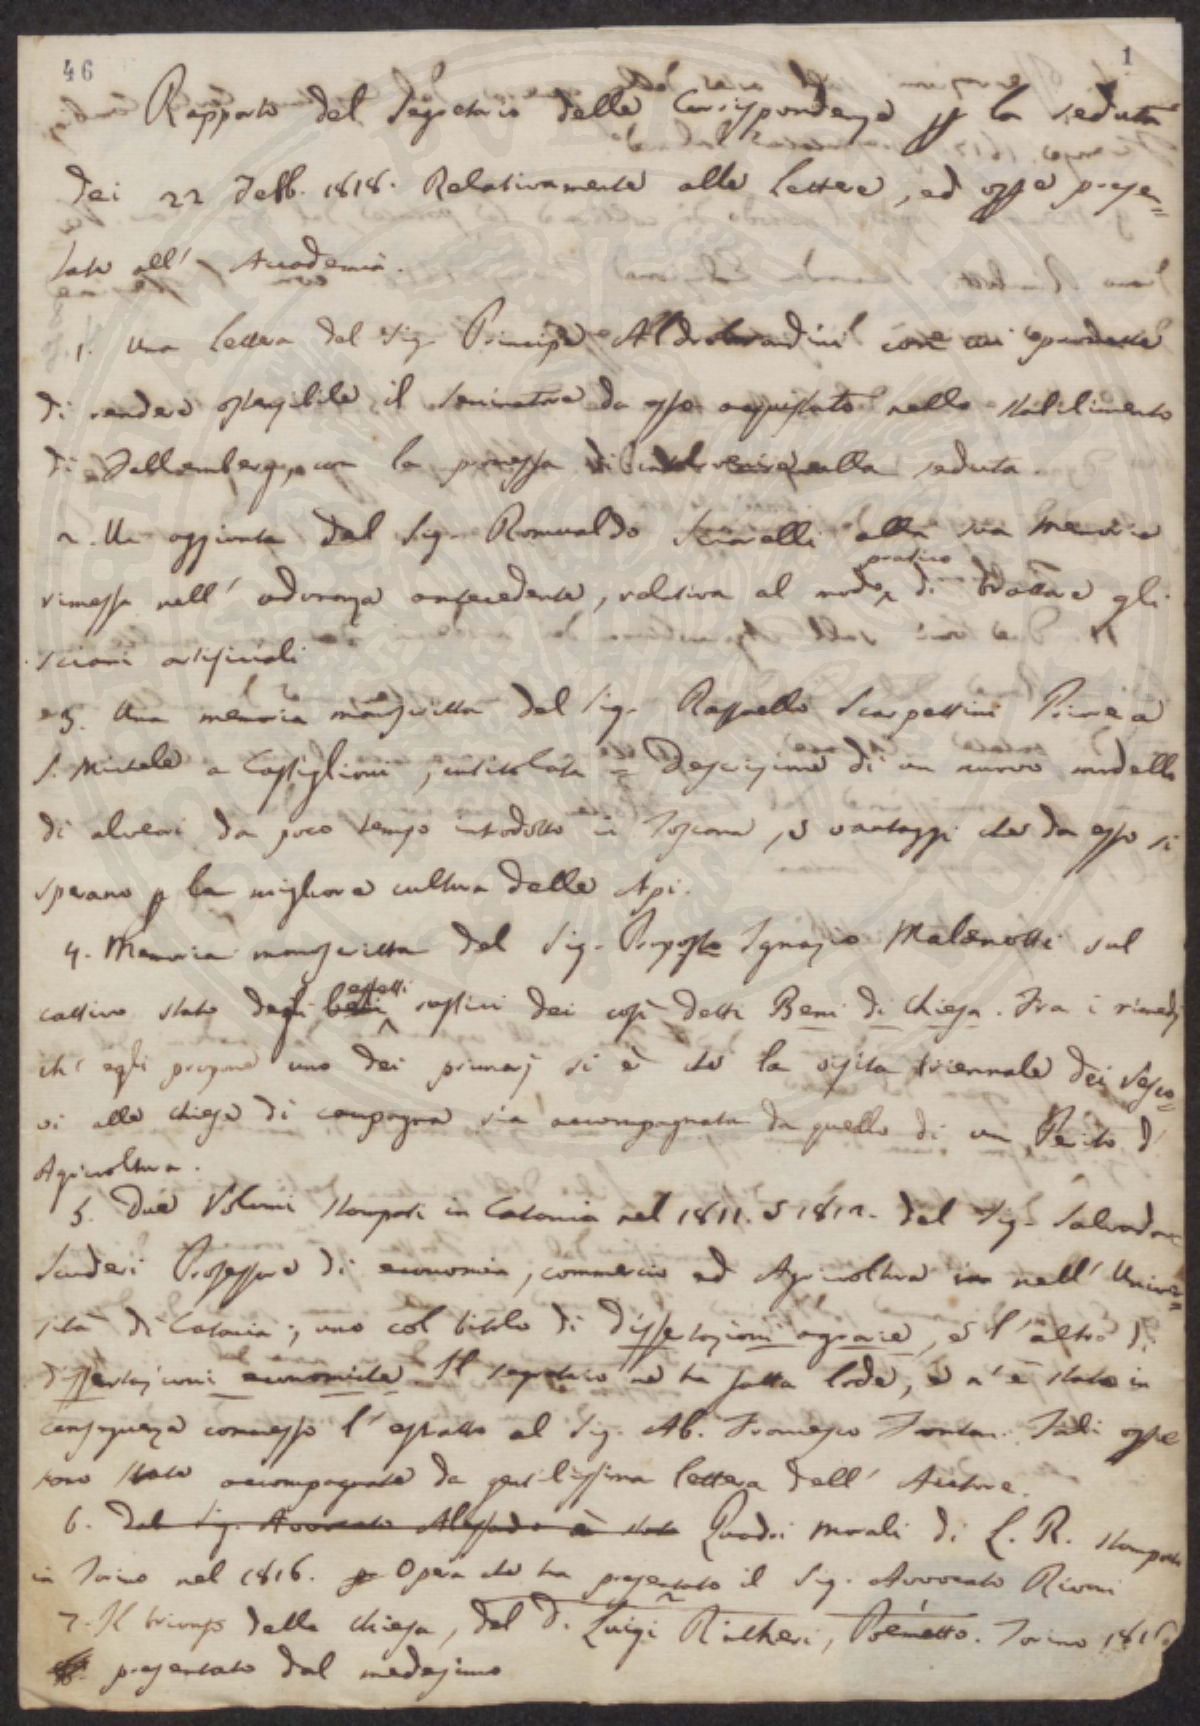 46
1
Rapporto del Segretario delle Corrispondenze p la seduta
dei 22 Febb. 1818. Relativamente alle Lettere, ed opere presen=
tate all' Accademia.
1. Una lettera del Sig. Principe Aldrobrandini
di rendere ostensibile il seminatore da esso acquistato nello stabilimento
di Fellemberg, con la promessa di intervenire alla seduta.
2. Un aggiunta del Sig. Romualdo alla sua Memoria
rimessa nell' adunanza antecedente, relativa al modo pratico di trattare gli
sciami artificiali
3. Una memoria manoscritta del Sig. Raffaello Scarpettini Priore a
S. Michele a Castiglioni, intitolata = Descrizione di un nuovo modello
di alveari da poco tempo introdotto in Toscana, e vantaggi che da esso si
sperano p la migliore cultura delle Api.
4. Memoria manoscritta del Sig. Proposto Ignazio Malenotti sul
cattivo stato degli beni effetti rustici dei così detti Beni di Chiesa. Fra i rimedj
ch' egli propone uno dei primarj si è che la visita triennale dei Vesco=
vi alle chiese di campagna sia accompagnata da quella di un Perito d'
Agricoltura.
5. Due Volumi stampati in Catania nel 1811. e 1812. del Sig. Salvadore
Scuderi Professore di economia, commercio ed Agricoltura nell' Univer=
sità di Catania; uno col titolo di dissertazioni agrarie, e l'altro di
dissertazioni economiche. Il segretario ne ha fatta lode, e n' è stato in
conseguenza commesso l' estratto al Sig. Ab. Francesco Fontani. Tali opere
sono state accompagnate da gentilissima lettera dell' Autore.
6. Dal Sig. Avvocato Alessandro è stato Quadri Morali di L. R. stampati
in Torino nel 1816. Opera che ha presentato il Sig. Avvocato Rivani
7. Il trionfo della Chiesa, del D. Luigi Richeri, Poemetto. Torino 1816
presentato dal medesimo